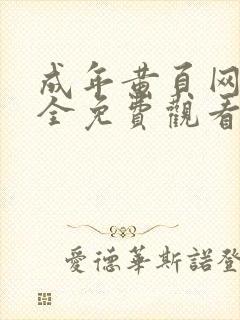 成年黄頁网
全免費觀看
愛德華斯諾登